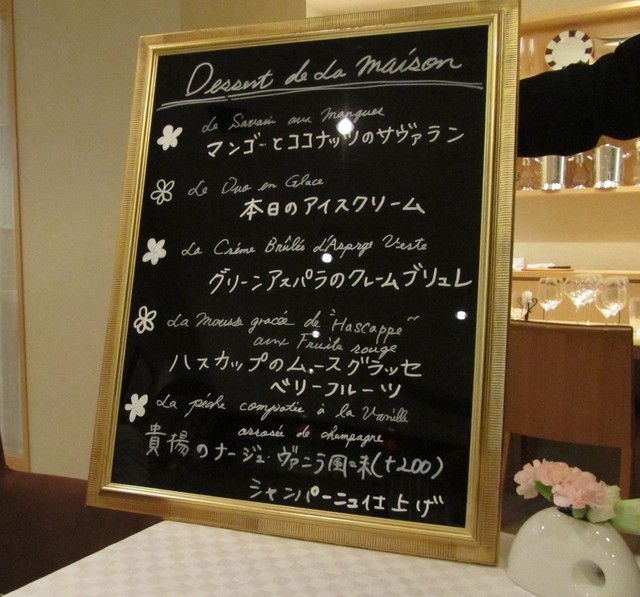 Dessert de La maison
Le Savarin aux Mangues
マンゴーとココナッツのサヴァラン
Le Duo en Glace
本日のアイスクリーム
La Crème Brûlée d'Asperge Verte
グリーンアスパラのクレームブリュレ
La Mousse glacée de "Hascappe"
aux Fruits rouge
ハスカップのムースグラッセ
ベリーフルーツ
La pêche compotée à la Vanille
arrosée de champagne
貴陽のナージュ・ヴァニラ風味(+200)
シャンパーニュ仕上げ